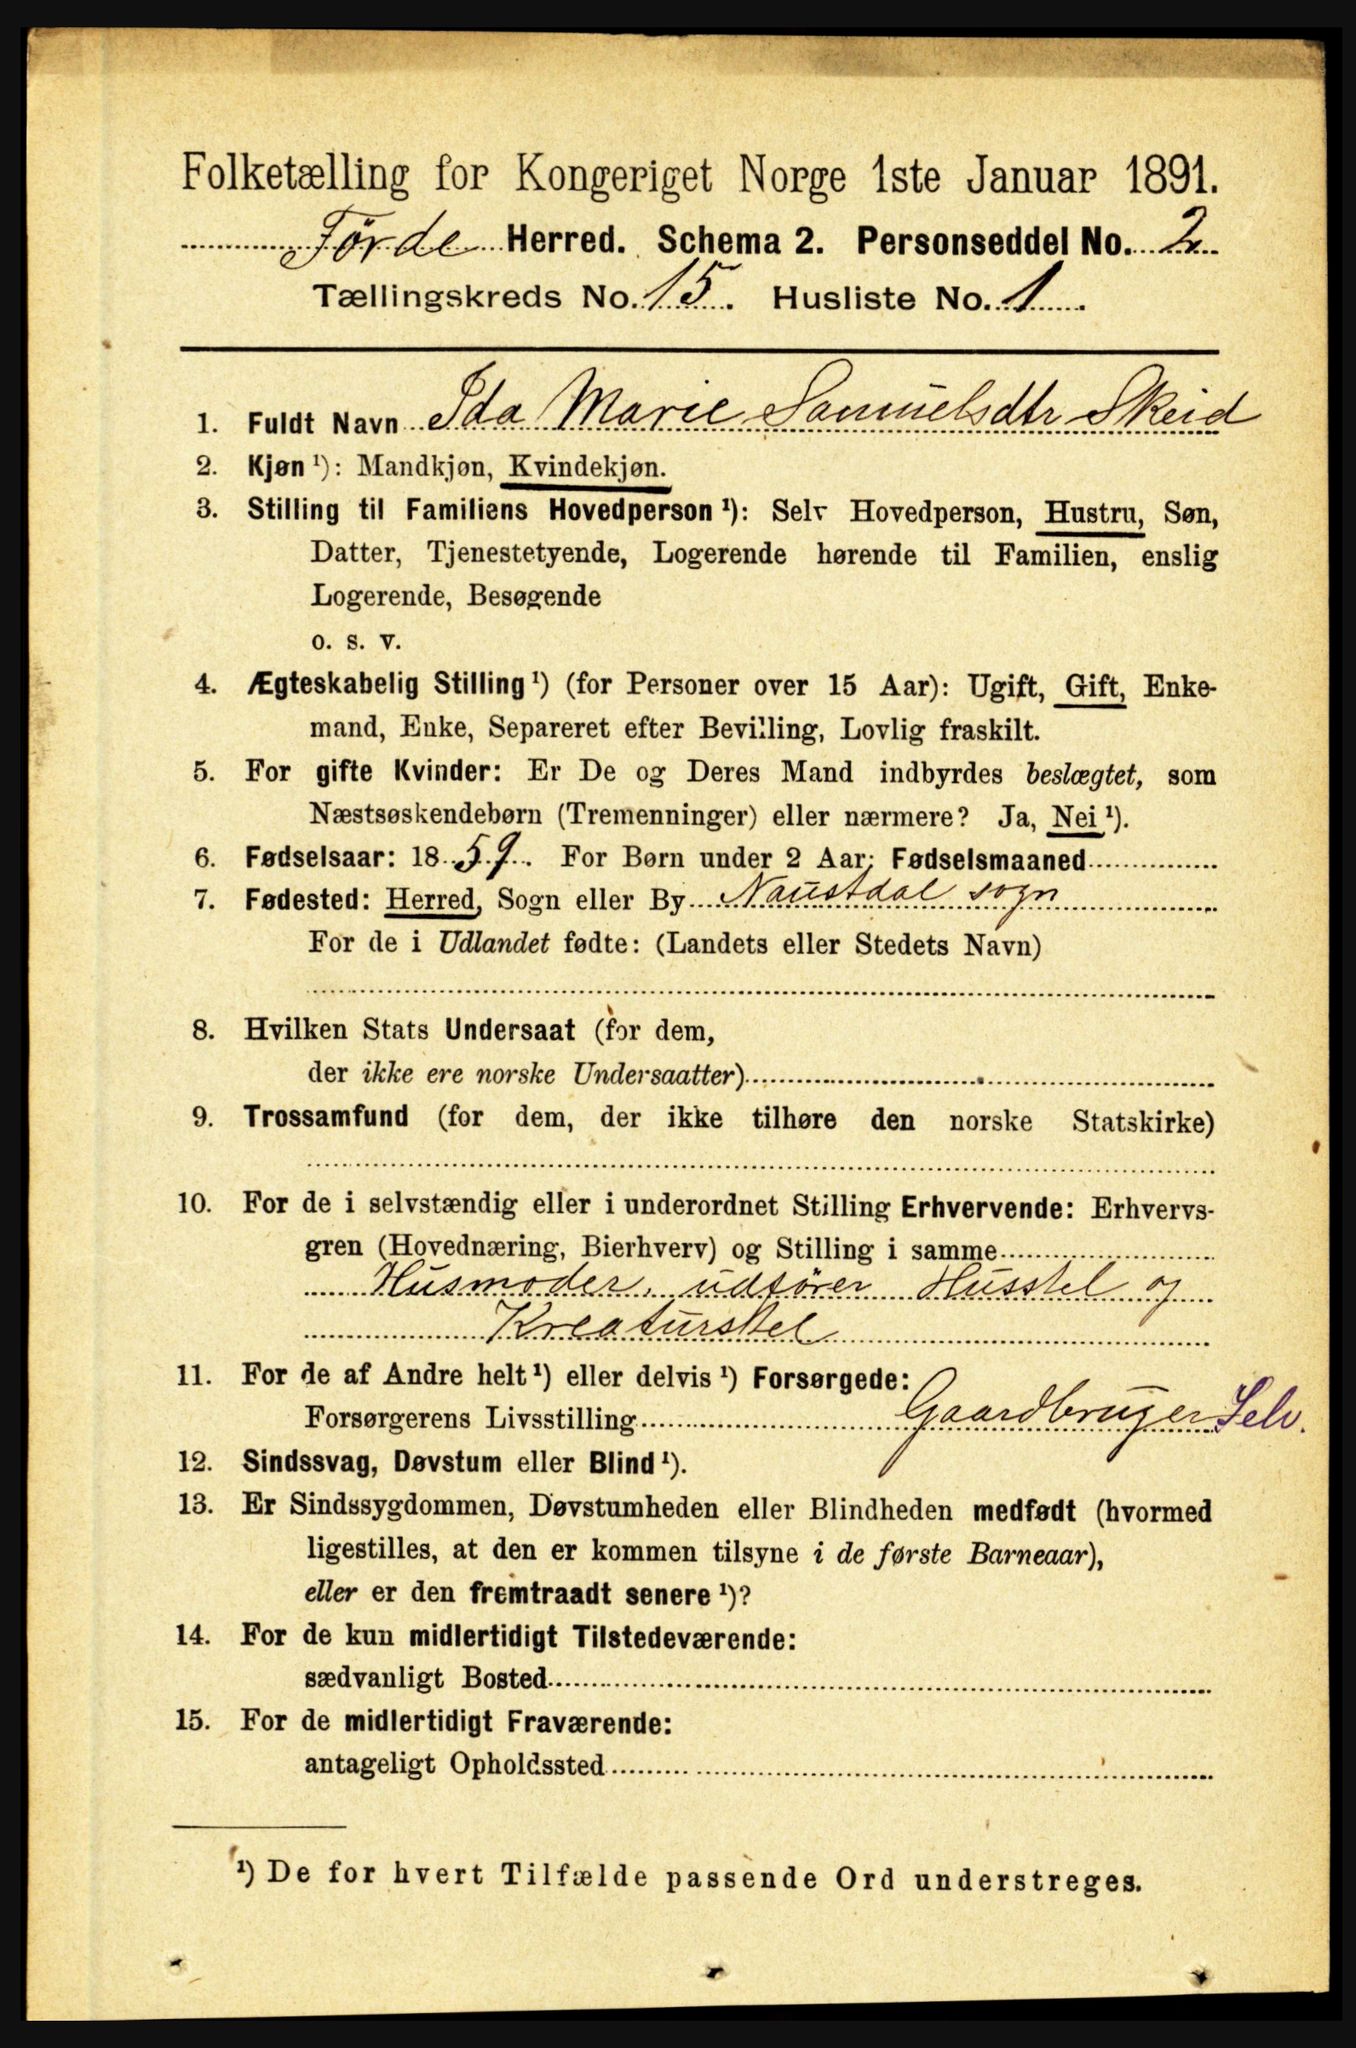 Folketælling for Kongeriget Norge 1ste Januar 1891.
Förde Herred. Schema 2. Personseddel No. 2
Tællingskreds No. 15. Husliste No. 1
1. Fuldt Navn Ida Marie Samuelsdtr Skeid
2. Kjøn ¹): Mandkjøn, Kvindekjøn.
3. Stilling til Familiens Hovedperson ¹): Selv Hovedperson, Hustru, Søn,
Datter, Tjenestetyende, Logerende hørende til Familien, enslig
Logerende, Besøgende
o. s. v.
4. Ægteskabelig Stilling ¹) (for Personer over 15 Aar): Ugift, Gift, Enke-
mand, Enke, Separeret efter Bevilling, Lovlig fraskilt.
5. For gifte Kvinder: Er De og Deres Mand indbyrdes beslægtet, som
Næstsøskendebørn (Tremenninger) eller nærmere? Ja, Nei ¹).
6. Fødselsaar: 1859. For Børn under 2 Aar: Fødselsmaaned
7. Fødested: Herred, Sogn eller By Naustdal sogn
For de i Udlandet fødte: (Landets eller Stedets Navn)
8. Hvilken Stats Undersaat (for dem,
der ikke ere norske Undersaatter)
9. Trossamfund (for dem, der ikke tilhøre den norske Statskirke)
10. For de i selvstændig eller i underordnet Stilling Erhvervende: Erhvervs-
gren (Hovednæring, Bierhverv) og Stilling i samme
Husmoder, udfører Husstel og
Kreaturstel
11. For de af Andre helt ¹) eller delvis ¹) Forsørgede:
Forsørgerens Livsstilling Gaardbruger Selv.
12. Sindssvag, Døvstum eller Blind ¹).
13. Er Sindssygdommen, Døvstumheden eller Blindheden medfødt (hvormed
ligestilles, at den er kommen tilsyne i de første Barneaar),
eller er den fremtraadt senere ¹)?
14. For de kun midlertidigt Tilstedeværende:
sædvanligt Bosted
15. For de midlertidigt Fraværende:
antageligt Opholdssted
¹) De for hvert Tilfælde passende Ord understreges.